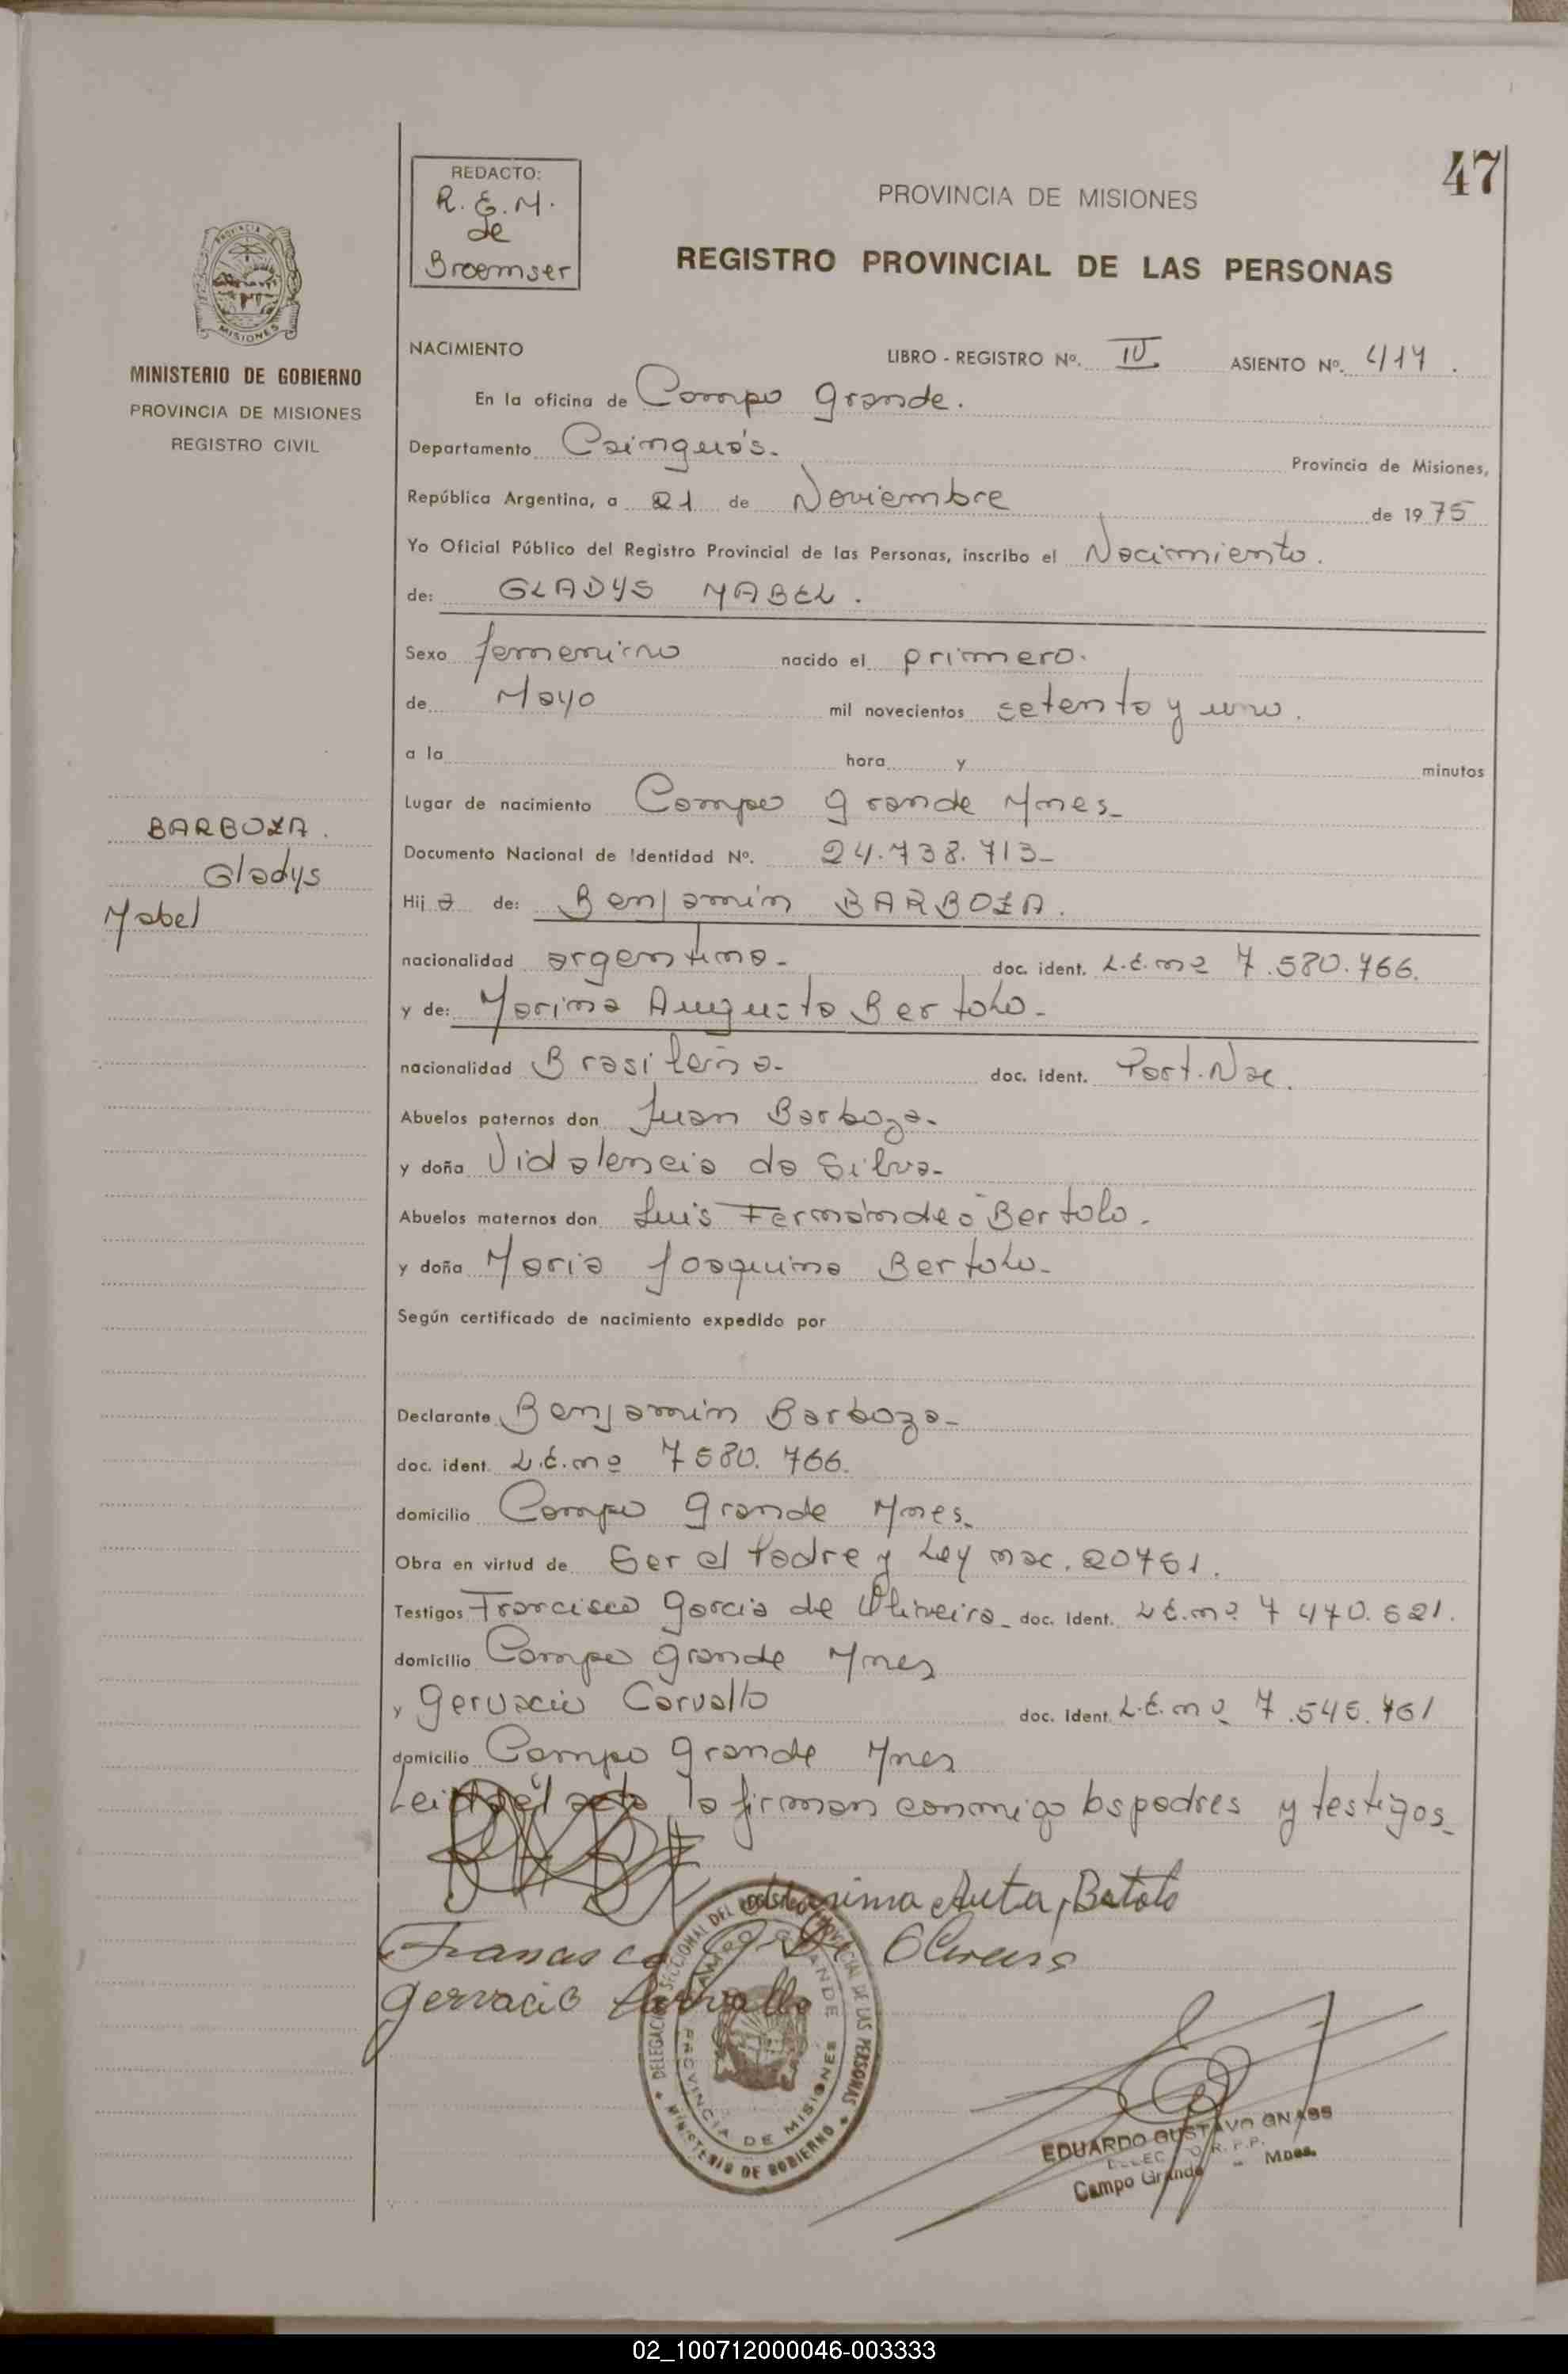 47
REDACTO:
R. E. M.
de
Broemser
PROVINCIA DE MISIONES
REGISTRO PROVINCIAL DE LAS PERSONAS
PROVINCIA DE
MISIONES
MINISTERIO DE GOBIERNO
PROVINCIA DE MISIONES
REGISTRO CIVIL
BARBOZA.
Gladys
Mabel
NACIMIENTO LIBRO - REGISTRO Nº. IV ASIENTO Nº. 417.
En la oficina de Campo Grande.
Departamento Cainguás. Provincia de Misiones,
República Argentina, a 21 de Noviembre de 1975
Yo Oficial Público del Registro Provincial de las Personas, inscribo el Nacimiento.
de: GLADYS MABEL.
Sexo femenino nacido el primero.
de Mayo mil novecientos setenta y uno.
a la hora y minutos
Lugar de nacimiento Campo grande Mnes_
Documento Nacional de Identidad Nº. 24.738.713_
Hij a de: Benjamín BARBOZA.
nacionalidad argentina_ doc. ident. L.E. nº 7.580.766.
y de: Marina Augusta Bertolo_
nacionalidad Brasileña_ doc. ident. Part. Nac.
Abuelos paternos don Juan Barboza_
y doña Vidalencia da Silva_
Abuelos maternos don Luis Bertolo_
y doña Maria Joaquina Bertolo_
Según certificado de nacimiento expedido por
Declarante Benjamín Barboza_
doc. ident. L.E. nº 7580.766.
domicilio Campo grande Mnes_
Obra en virtud de Ser el Padre y Ley nac. 20751.
Testigos Francisco Garcia de Oliveira_ doc. ident. L.E. nº 7 470.621.
domicilio Campo grande Mnes
y Gervacio Carvallo doc. ident. L.E. nº 7.545.761
domicilio Campo grande Mnes
Leida el acta, la firman conmigo los padres y testigos_
Bertolo
Francisco G. De Oliveira
Gervacio Carvallo
DELEGACION SECCIONAL DEL REGISTRO PROVINCIAL DE LAS PERSONAS
CAMPO GRANDE
PROVINCIA DE MISIONES
MINISTERIO DE GOBIERNO
EDUARDO GUSTAVO GNASS
R. P. P.
Campo Grande - Mnes.
02_100712000046-003333